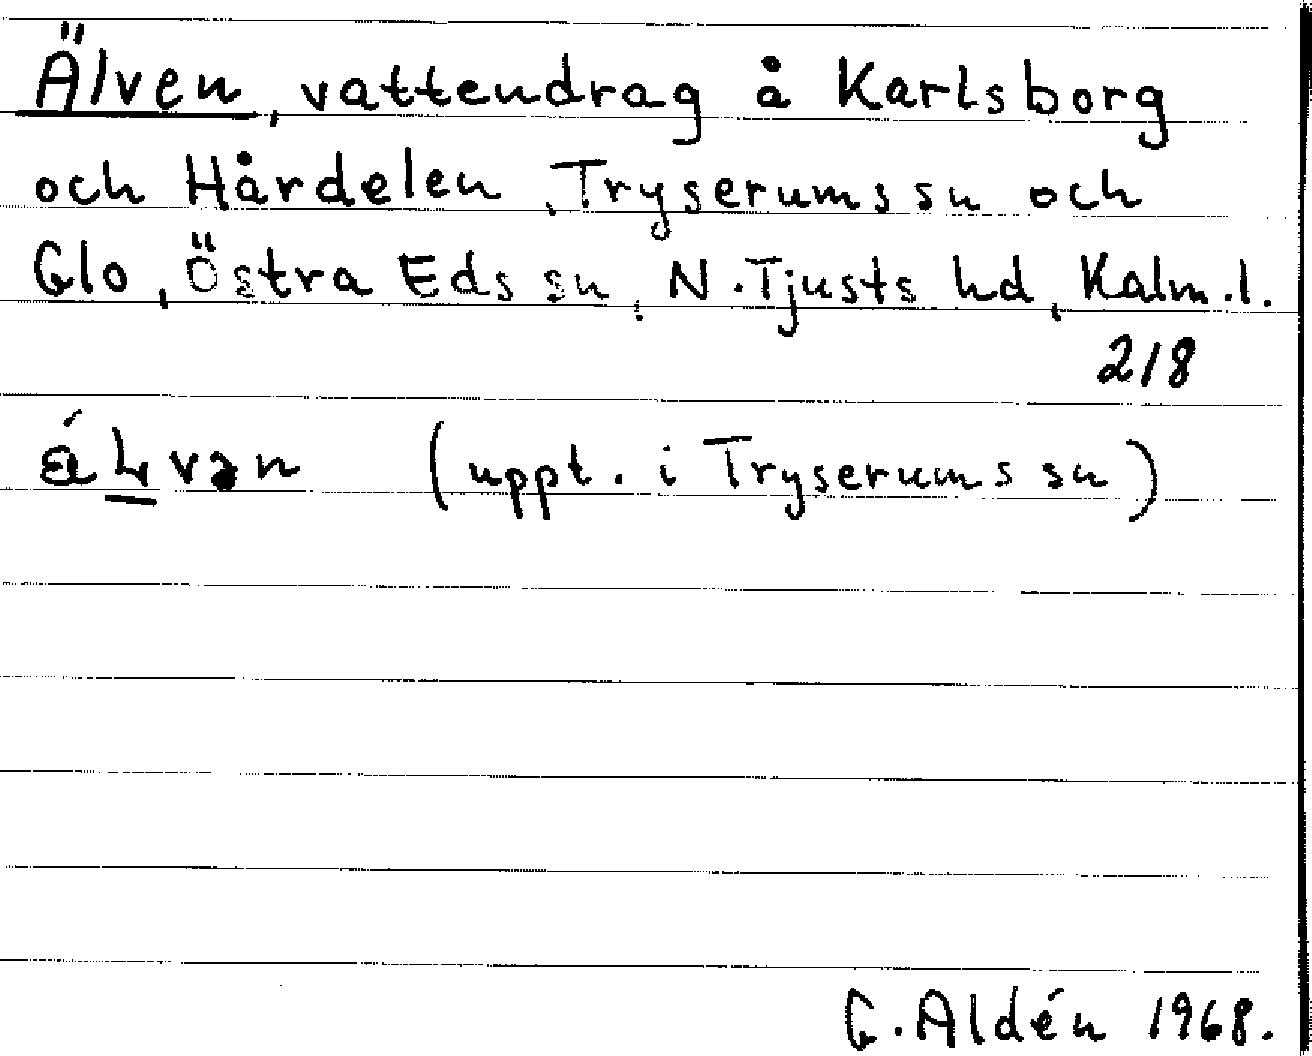 Älven, vattendrag å Karlsborg
och Hårdelen, Tryserums sn och
Glo, Östra Eds sn, N. Tjusts hd, Kalm. l.
218
(uppt. i Tryserums sn)
G. Aldén 1968.